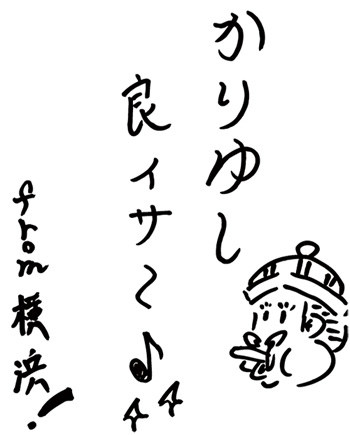 かりゆし
良ィサ〜♪
from 横浜!